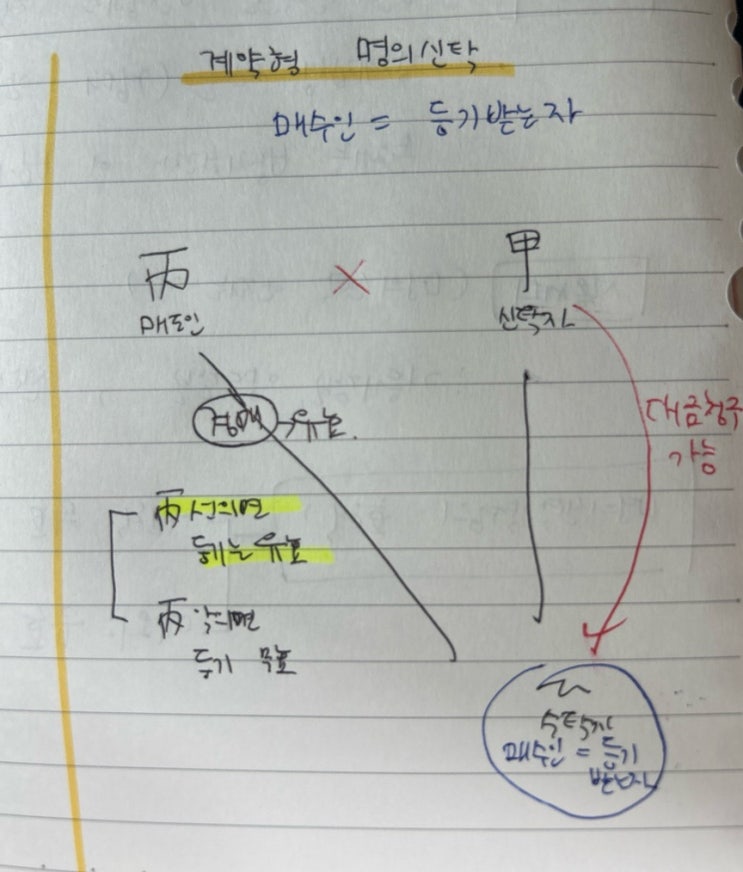 계약형 명의신탁
매수인 = 등기받는자
丙 × 甲
매도인 신탁자
경매 → 유효.
대금청구
가능
丙 선의면
등기는 유효
丙 악의면
등기 무효
乙
수탁자
매수인 = 등기
받는자